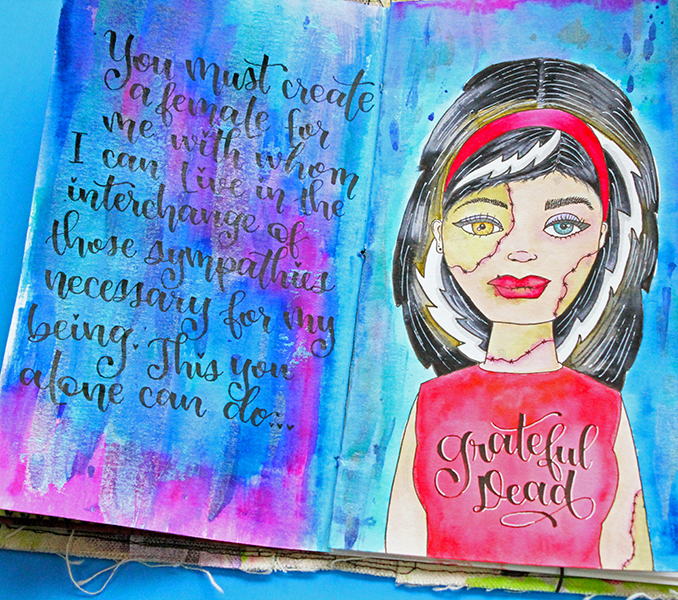 You must create
a female for
me with whom
I can live in the
interchange of
those sympathies
necessary for my
being. This you
alone can do...
grateful
Dead